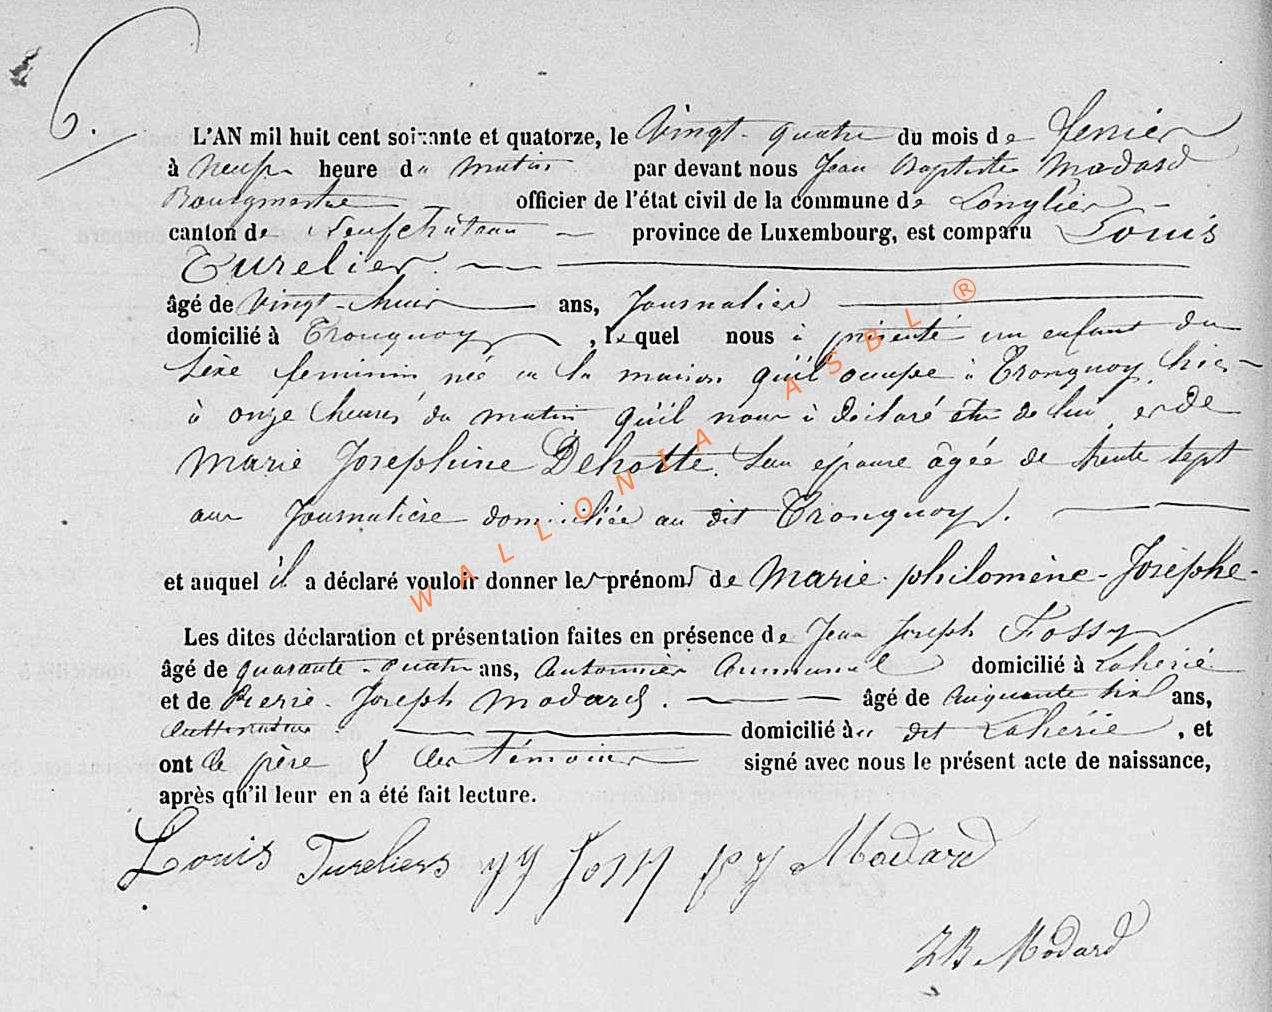 6.
L'AN mil huit cent soixante et quatorze, le Vingt-quatre du mois de fevrier
à neuf heure du matin par devant nous Jean Baptiste Modard
Bourgmestre officier de l'état civil de la commune de Longlier
canton de Neufchâteau province de Luxembourg, est comparu Louis
Turelier
âgé de Vingt-huit ans, Journalier
domicilié à Tronquoy, lequel nous à présenté un enfant du
Sexe feminin né en la maison qu'il occupe à Tronquoy hier
à onze heures du matin qu'il nous à déclaré être de lui et de
Marie Josephine Dehotte Son épouse âgée de trente sept
ans Journalière domiciliée au dit Tronquoy.
et auquel il a déclaré vouloir donner les prénoms de Marie-philomène-Josèphe-
Les dites déclaration et présentation faites en présence de Jean Joseph Fossy
âgé de quarante-quatre ans, Cantonnier Communal domicilié à Laherie
et de Pierre-Joseph Modard. âgé de Cinquante six ans,
Cultivateur domicilié au dit Laherie, et
ont le père & les témoins signé avec nous le présent acte de naissance,
après qu'il leur en a été fait lecture.
Louis Tureliers JJ Fossy PJ Modard
JB Modard
WALLONIA ASBL ®